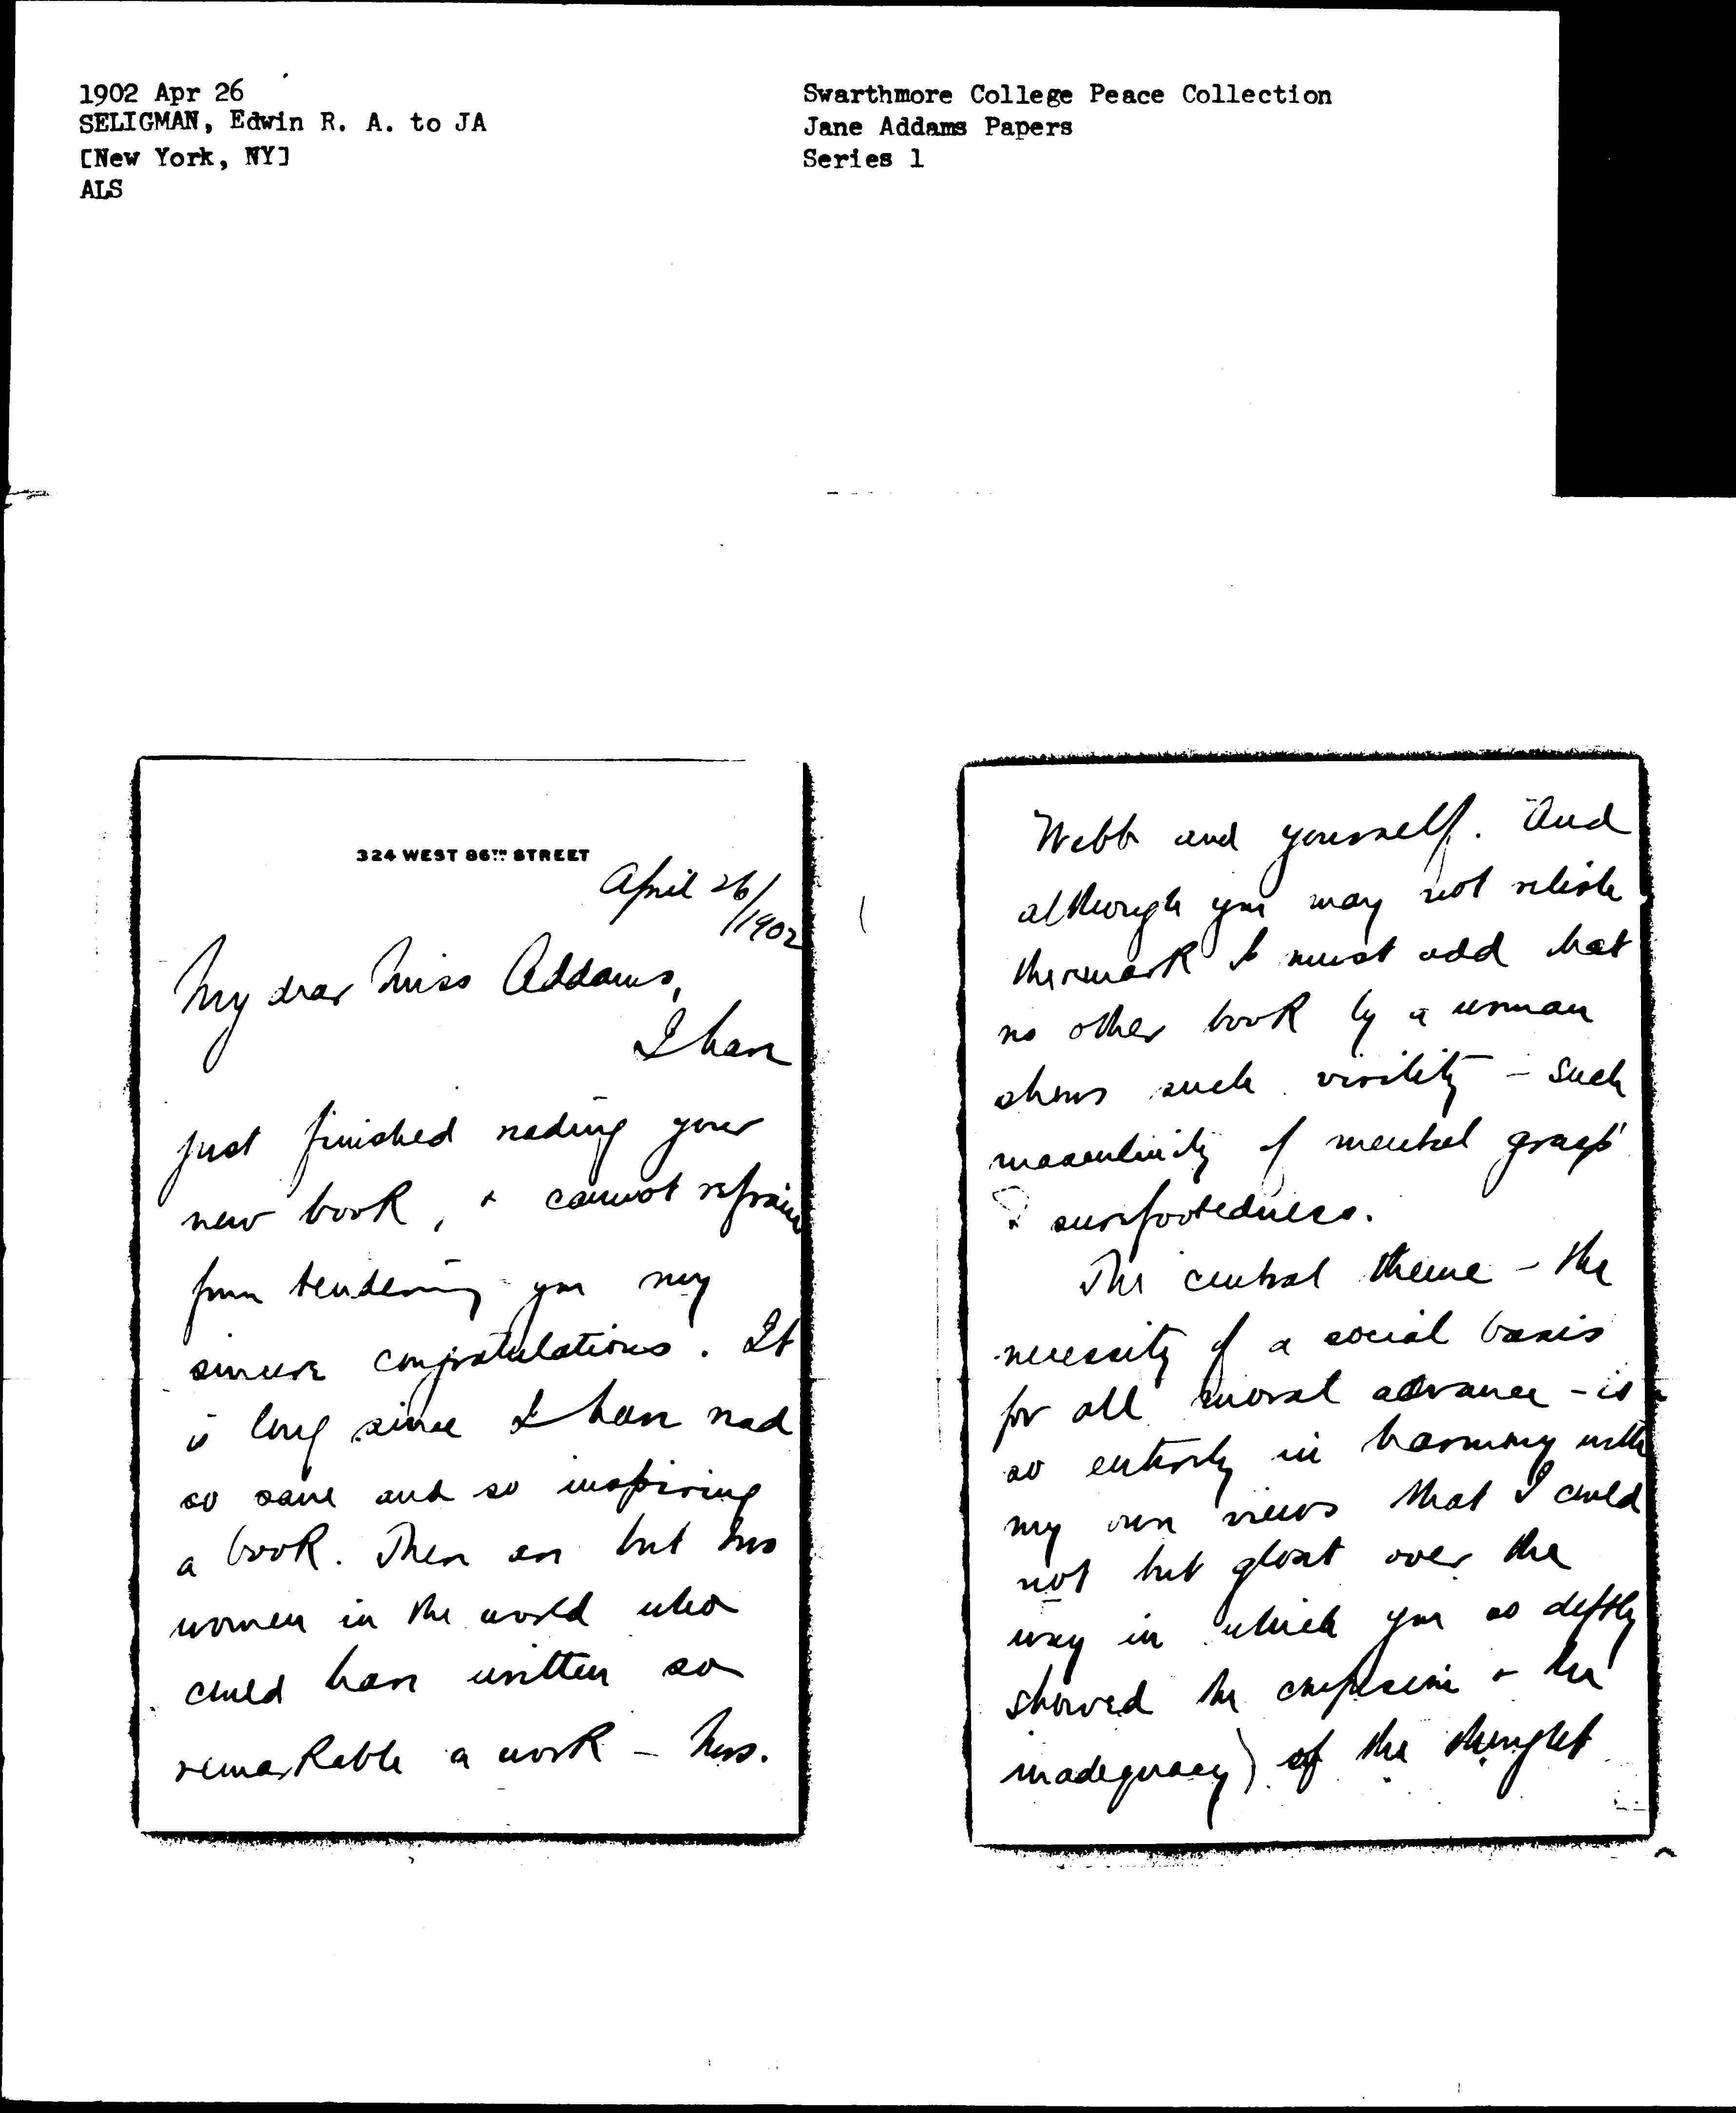 1902 Apr 26
SELIGMAN, Edwin R. A. to JA
[New York, NY]
ALS
Swarthmore College Peace Collection
Jane Addams Papers
Series 1
324 WEST 86TH STREET
April 26/1902
My dear Miss Addams,
I have
just finished reading your
new book, & cannot refrain
from tendering you my
sincere congratulations. It
is long since I have read
so sane and so inspiring
a book. There are but two
women in the world who
could have written so
remarkable a work – Mrs.
Webb and yourself. And
although you may not relish
the remark I must add that
no other book by a woman
shows such virility – such
masculinity of mental grasp
& surefootedness.
The central theme – the
necessity of a social basis
for all moral advance – is
so entirely in harmony with
my own views that I could
not but gloat over the
way in which you so deftly
showed the confusion & the
inadequacy) of the thought